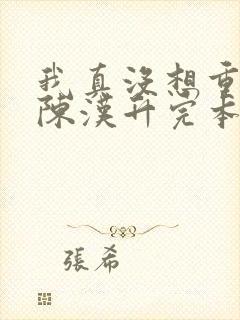 我真沒想重
陳漢升完本
張希